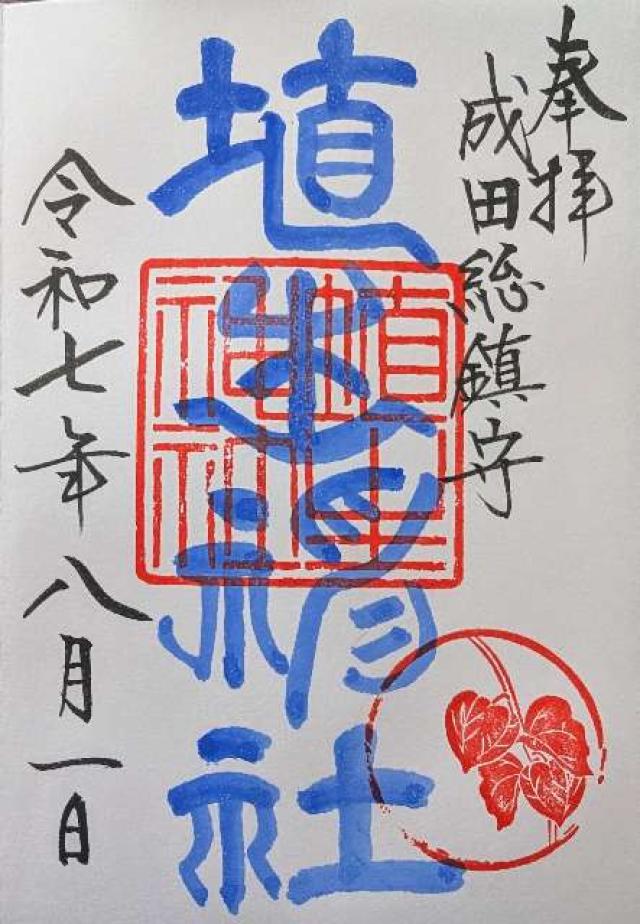 奉拝
成田総鎮守
埴生神社
埴生
神社
令和七年八月一日